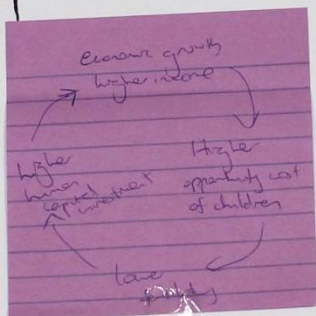 economic growth
higher income
Higher
opportunity cost
of children
lower
fertility
higher
human
capital
investment